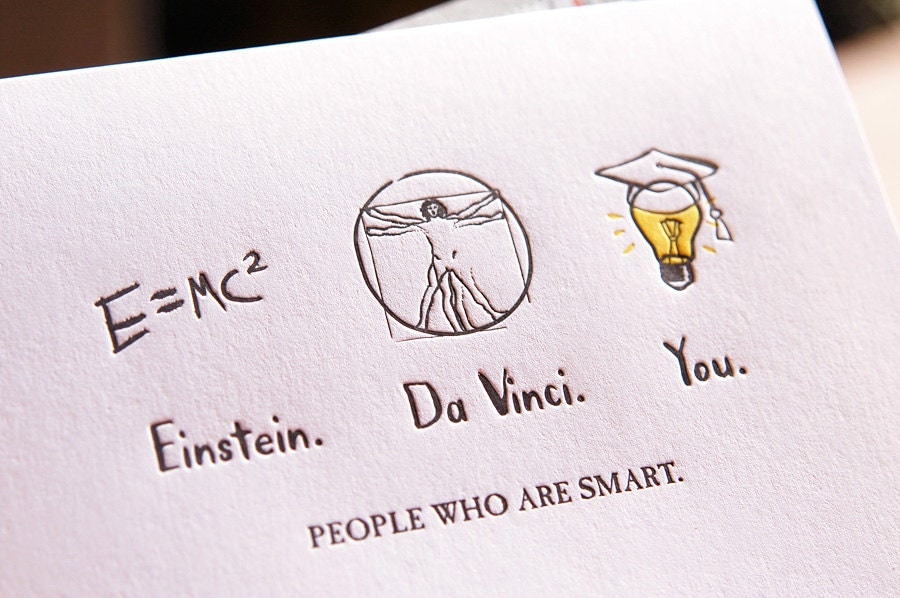 E=MC²
Einstein. Da Vinci. You.
PEOPLE WHO ARE SMART.